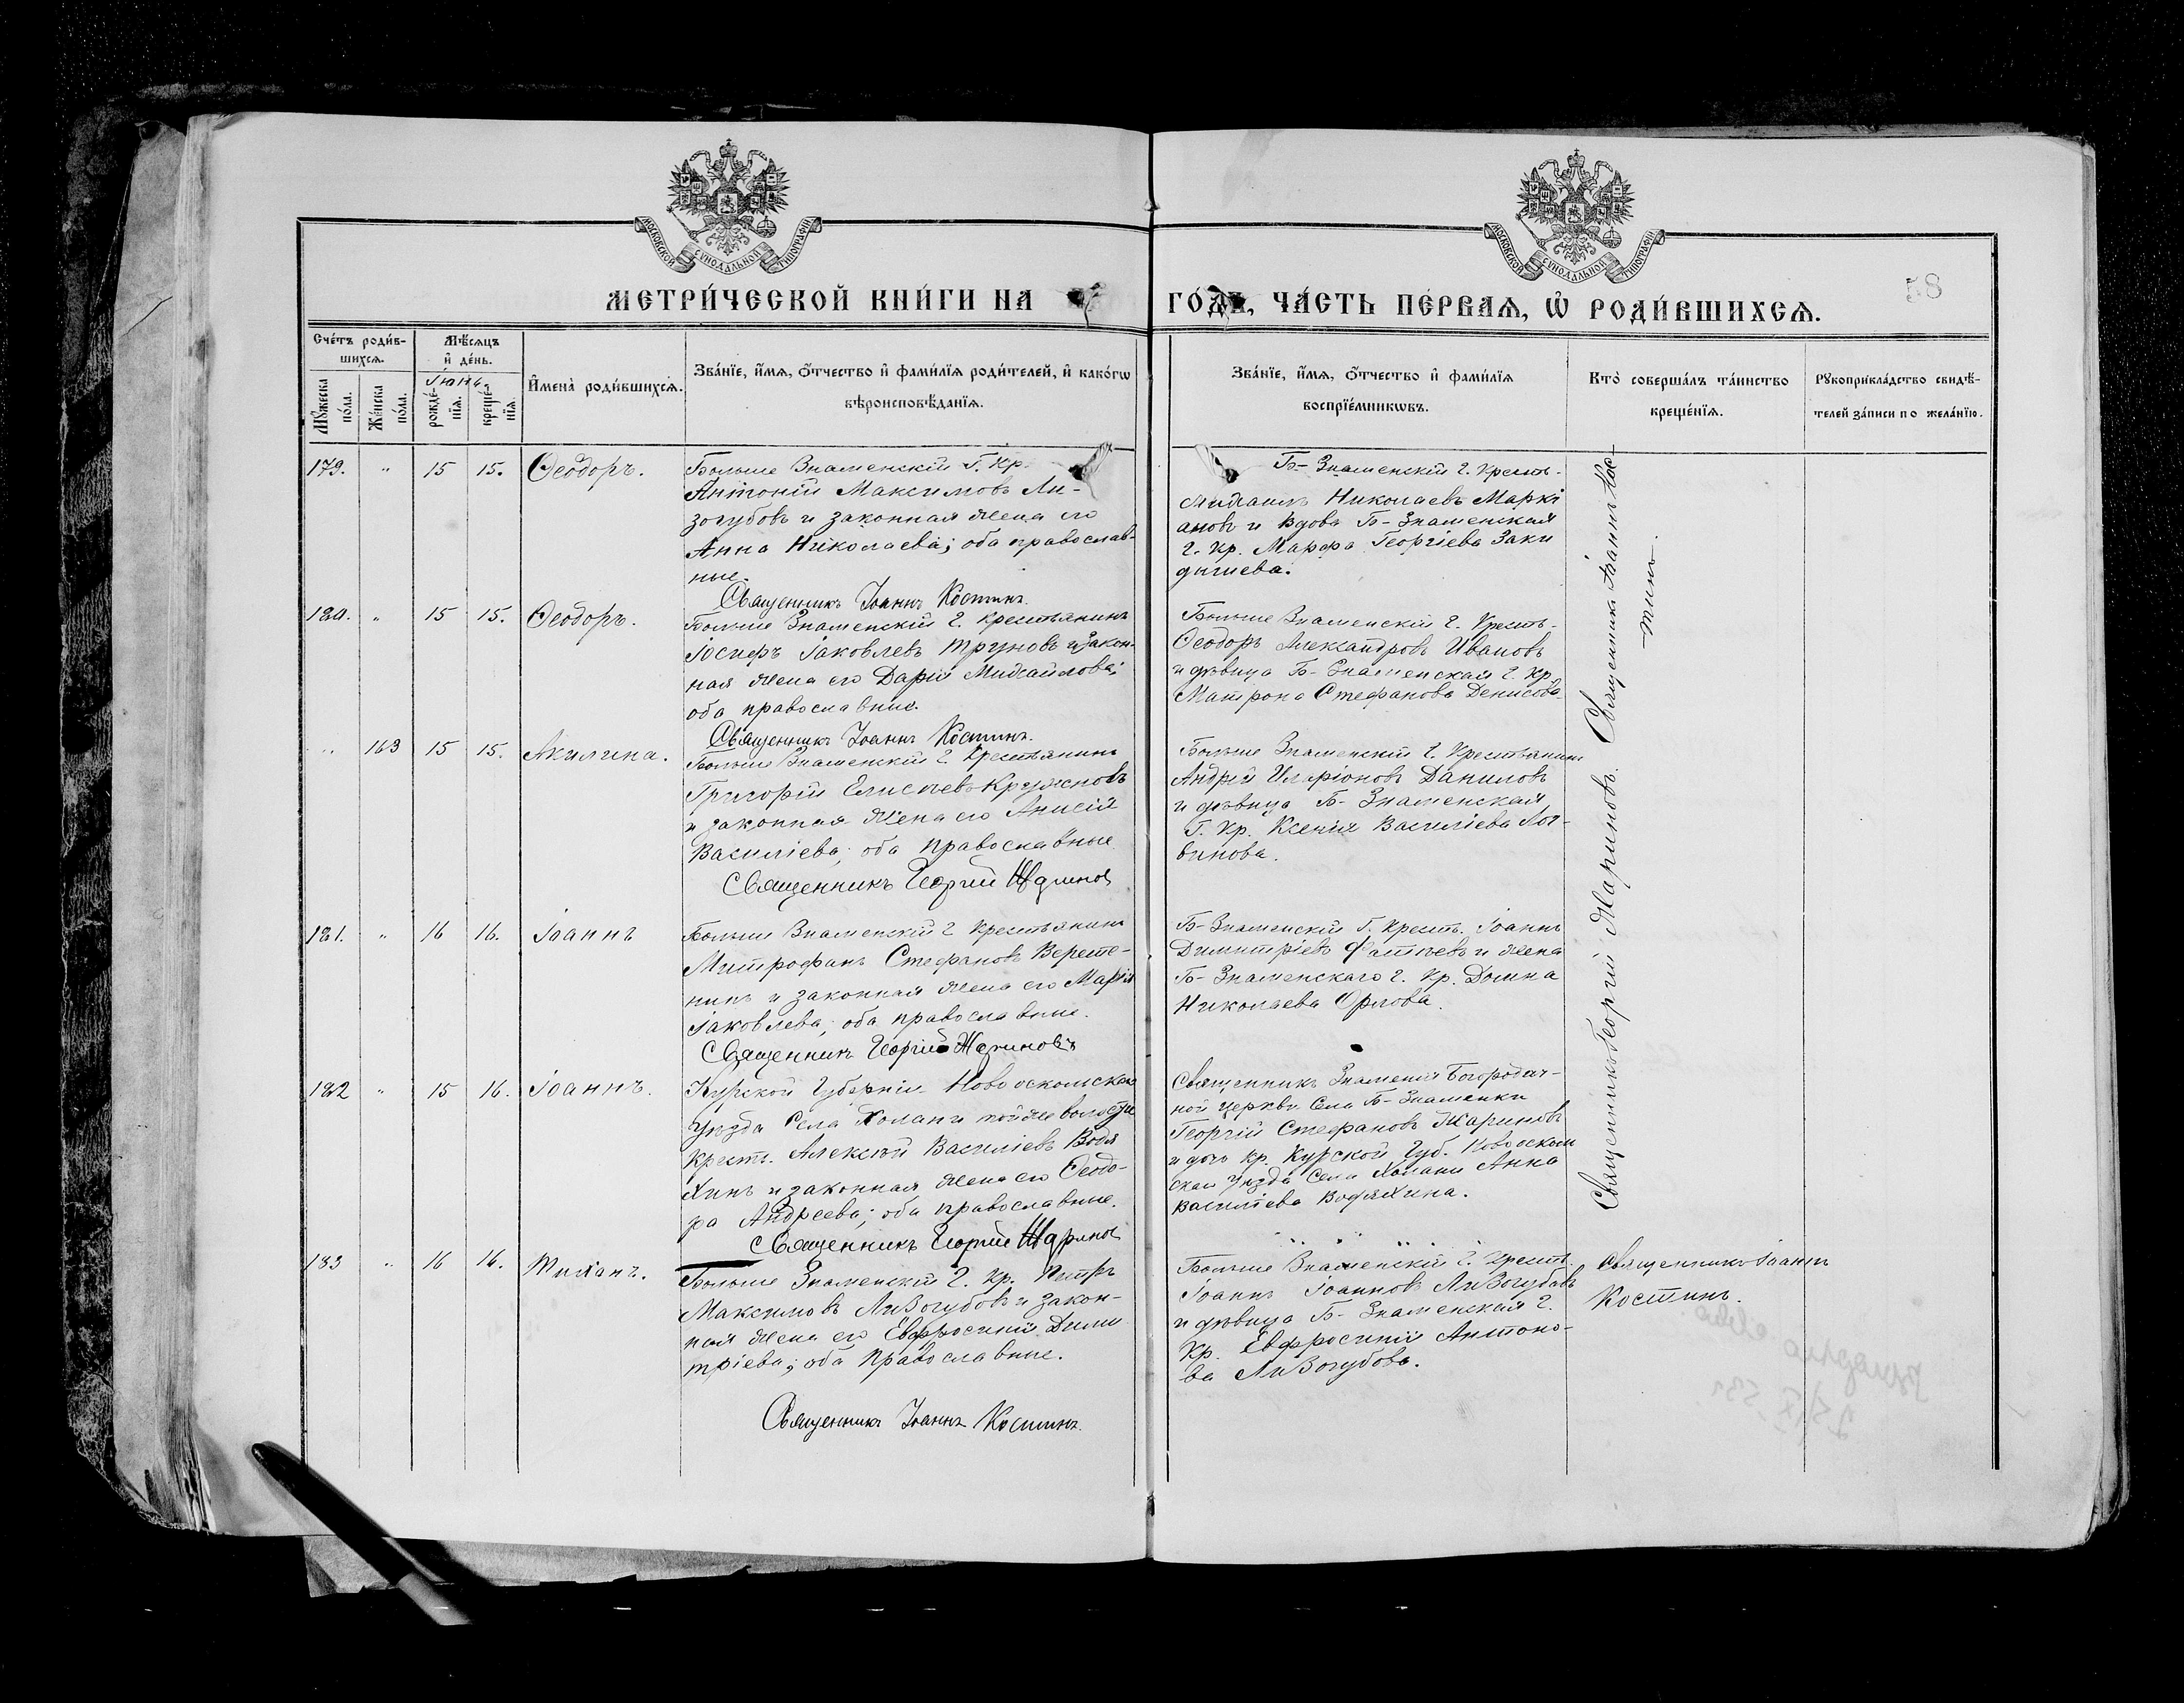 МОСКОВСКОЙ СѴНОДАЛЬНОЙ ТИПОГРАФІИ
МОСКОВСКОЙ СѴНОДАЛЬНОЙ ТИПОГРАФІИ
58
МЕТРИ́ЧЕСКОЙ КНИ́ГИ НА
ГО́ДЪ, ЧА́СТЬ ПЕ́РВАѦ, Ѡ҆ РОДИ́ВШИХСѦ.
Сче́тъ роди́в-
шихсѧ.
Мѣ́сѧцъ
и҆ де́нь.
Іюнь.
Мꙋ́жеска по́ла.
Же́нска по́ла.
рожде́-
нїѧ.
креще́-
нїѧ.
И҆мена̀ роди́вшихсѧ.
Зва́нїе, и҆́мѧ, ѻ҆́тчество и҆ фами́лїѧ роди́телей, и҆ како́гѡ
вѣроисповѣ́данїѧ.
Зва́нїе, и҆́мѧ, ѻ҆́тчество и҆ фами́лїѧ
воспрїе́мникѡвъ.
Кто̀ соверша́лъ та́инство
креще́нїѧ.
Рꙋкоприкла́дство свидѣ́-
телей за́писи по жела́нїю.
179. " 15 15. Ѳеодоръ.
Больше Знаменскій Г. Кр.
Антоній Максимовъ Ли-
зогубовъ и законная жена его
Анна Николаева; оба православ-
ные.
Священникъ Іоаннъ Костинъ.
Б-Знаменскій г. Кресть-
Михаилъ Николаевъ Маркі
ановъ и вдова Б-Знаменская
г. кр. Марфа Георгіева Заки
дышева.
180. " 15 15. Ѳеодоръ.
Больше Знаменскій г. крестьянинъ
Іосифъ Іаковлевъ Труновъ и закон-
ная жена его Дарія Михаилова;
оба православные.
Священникъ Іоаннъ Костинъ.
Больше Знаменскій г. Кресть-
Ѳеодоръ Александровъ Ивановъ
и дѣвица Б-Знаменская г. кр.
Матрона Стефанова Денисова
" 163 15 15. Акилина.
Больше Знаменскій г. Крестьянинъ
Григорій Кружновъ
и законная жена его Анисія
Василіева; оба православные
Священникъ Георгій Жариновъ
Больше Знаменскій г. Крестьянинъ
Андрей Иларіоновъ Даниловъ
и дѣвица Б-Знаменская
Г. Кр. Ксенія Василіева Лог-
винова.
181. " 16 16. Іоаннъ
Больше Знаменскій г Крестьянинъ
Митрофанъ Стефановъ Верете-
нинъ и законная жена его Марія
Іаковлева; оба православные.
Священникъ Георгій Жариновъ
Б-Знаменскій г. Крест. Іоаннъ
Димитріевъ Фатѣевъ и жена
Б-Знаменскаго г. кр. Домна
Николаева Орлова.
182 " 15 16. Іоаннъ.
Курской Губерніи Новооскольскаго
Уѣзда Села Холани той же волости
крест. Алексѣй Василіевъ Водя
хинъ и законная жена его Ѳеодо-
ра Андреева; оба православные.
Священникъ Георгій Жариновъ
Священникъ Знаменія Богородич-
ной церкви Села Б-Знаменки
Георгій Стефановъ Жариновъ
и дочь кр. Курской Губ. Новооскол
скаго Уѣзда Села Холани Анна
Василіева Водяхина.
183 " 16 16. Тихонъ.
Больше Знаменскій г. Кр. Петръ
Максимовъ Лизогубовъ и закон-
ная жена его Евфросинія Дими
тріева; оба православные.
Священникъ Іоаннъ Костинъ.
Больше Знаменскій г. Крест.
Іоаннъ Іоанновъ Лизогубовъ
и дѣвица Б-Знаменская г.
Кр. Евфросинія Антоно-
ва Лизогубова.
Священникъ Георгій Жариновъ. Священникъ Іоаннъ Кос-
тинъ.
Священникъ Іоаннъ
Костинъ.